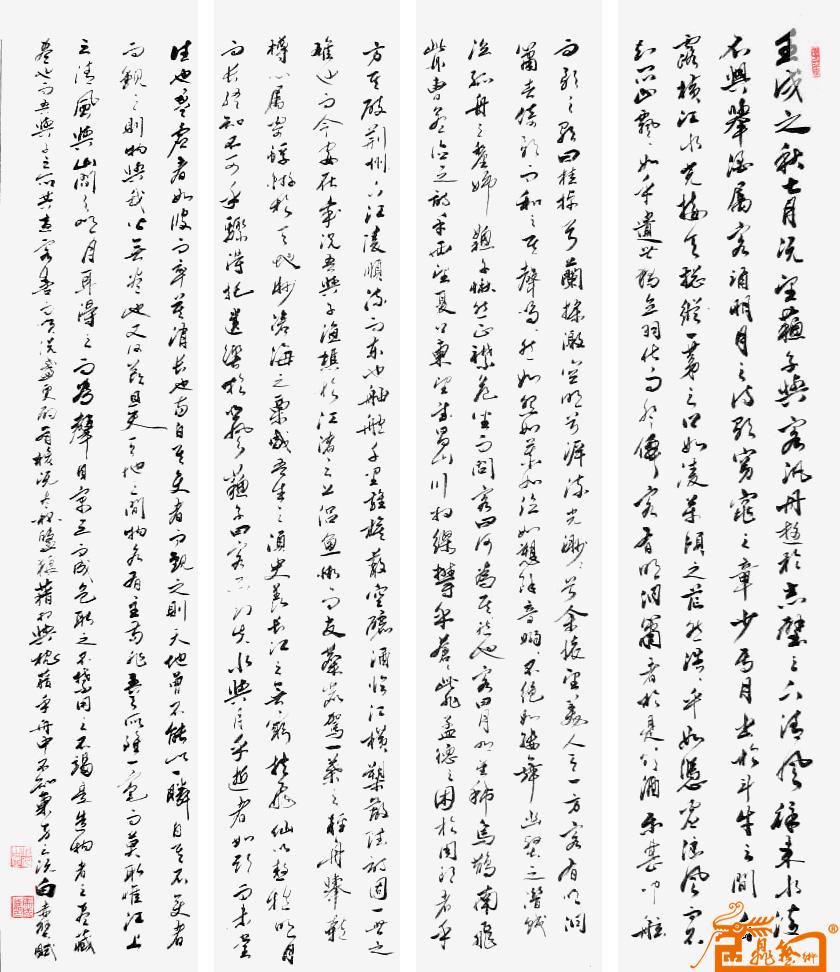 壬戌之秋七月既望蘇子與客汎舟遊於赤壁之下清風徐來水波
不興舉酒屬客誦明月之詩歌窈窕之章少焉月出於斗牛之間白
露橫江水光接天縱一葦之所如凌萬頃之茫然浩浩乎如憑虛御風而不
知所止飄飄如乎遺世獨立羽化而登仙客有吹洞簫者於是飲酒樂甚叩舷
而歌之歌曰桂棹兮蘭槳擊空明兮溯流光渺渺兮余懷望美人天一方客有吹洞
簫者倚歌而和之其聲嗚然如怨如慕如泣如訴餘音嫋不絕如縷舞幽壑之潛蛟
泣孤舟之嫠婦蘇子愀然正襟危坐而問客曰何為其然也客曰月明星稀烏鵲南飛
此非曹孟德之詩乎西望夏口東望武昌山川相繆鬱乎蒼此非孟德之困於周郎者乎
方其破荊州下江陵順流而東也舳艫千里旌旗蔽空釃酒臨江橫槊賦詩固一世之
雄也而今安在哉況吾與子漁樵於江渚之上侶魚蝦而友麋鹿駕一葉之輕舟舉匏
樽以屬寄蜉蝣於天地渺滄海之粟哀吾生之須臾羨長江之無窮挾飛仙以遨遊明月
而長終知不可乎驟得托遺響於悲風蘇子曰客亦知夫水與月乎逝者如斯而未嘗
往也盈虛者如彼而卒莫消長也蓋自其變者而觀之則天地曾不能以一瞬自其不變者
而觀之則物與我皆無盡也又何羨且夫天地之間物各有主苟非吾之所雖一毫而莫取惟江上
之清風與山間之明月耳得之而為聲目寓之而成色取之不禁用之不竭是造物者之無盡藏
也而吾與子之所共適客喜而笑洗盞更酌肴核既盡杯盤狼藉相與枕藉乎舟中不知東方之既白赤壁賦